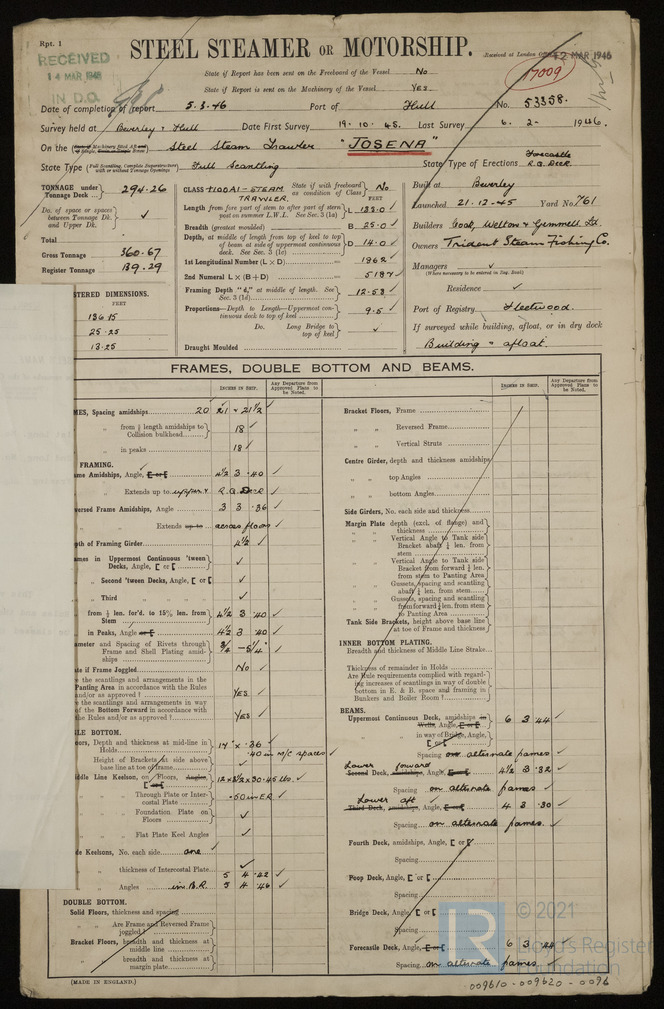 Rpt. 1
RECEIVED
14 MAR 1946
IN D.O.
STEEL STEAMER OR MOTORSHIP.
Received at London Office 12 MAR 1946
17009
State if Report has been sent on the Freeboard of the Vessel No
State if Report is sent on the Machinery of the Vessel YES
Date of completion of report 5.3.46 Port of Hull No. 53358.
Survey held at Beverley & Hull Date First Survey 19.10.45. Last Survey 6.2. 1946.
On the Steel Steam Trawler "JOSENA"
State Type (Full Scantling, Complete Superstructure with or without Tonnage Openings) Full Scantling State Type of Erections Forecastle R.Q. Deck
TONNAGE under Tonnage Deck 294.26
Do. of space or spaces between Tonnage Dk. and Upper Dk. ✓
Total
Gross Tonnage 360.67
Register Tonnage 139.29
STERED DIMENSIONS.
FEET
136.15
25.25
13.25
CLASS +100A1 - STEAM TRAWLER. State if with freeboard as condition of Class No
FEET
Length from fore part of stem to after part of stern post on summer L.W.L. See Sec. 3 (1a) L 135.0
Breadth (greatest moulded) B 25.0
Depth, at middle of length from top of keel to top of beam at side of uppermost continuous deck. See Sec. 3 (1c) D 14.0
1st Longitudinal Number (L × D) 1862
2nd Numeral L × (B + D) 5187
Framing Depth "d," at middle of length. See Sec. 3 (1d) 12.53
Proportions—Depth to Length—Uppermost continuous deck to top of keel 9.5
Do. Long Bridge to top of keel ✓
Draught Moulded
Built at Beverley
Launched 21.12.45 Yard No. 761
Builders Cook, Welton & Gemmell Ld.
Owners Trident Steam Fishing Co.
Managers ✓
(Where necessary to be entered in Reg. Book)
Residence ✓
Port of Registry Fleetwood.
If surveyed while building, afloat, or in dry dock
Building & afloat.
FRAMES, DOUBLE BOTTOM AND BEAMS.
INCHES IN SHIP. Any Departure from Approved Plans to be Noted.
MES, Spacing amidships 20 21 & 21½ ✓
" " from ¾ length amidships to Collision bulkhead 18 ✓
" " in peaks 18 ✓
FRAMING.
me Amidships, Angle, 4½ 3 .40 ✓
" " Extends up to upper & R.Q. Deck ✓
versed Frame Amidships, Angle 3 3 .36 ✓
" " Extends across floors ✓
pth of Framing Girder 4½ ✓
mes in Uppermost Continuous 'tween Decks, Angle, [ or [ ✓
" Second 'tween Decks, Angle, [ or [ ✓
" Third " " ✓
" from ⅕ len. for'd. to 15% len. from Stem 4½ 3 .40 ✓
" in Peaks, Angle 4½ 3 .40 ✓
ameter and Spacing of Rivets through Frame and Shell Plating amidships ¾ - 5¼ ✓
te if Frame Joggled No ✓
e the scantlings and arrangements in the Panting Area in accordance with the Rules and/or as approved? YES ✓
e the scantlings and arrangements in way of the Bottom Forward in accordance with the Rules and/or as approved? YES ✓
LE BOTTOM.
ors, Depth and thickness at mid-line in Holds 17" × .36 ✓
.40 in m/c spaces ✓
" Height of Brackets at side above base line at toe of frame ✓
ddle Line Keelson, on Floors, 12 × 3½ × 30.45 lbs. ✓
" " Through Plate or Intercostal Plate .50 in E.R. ✓
" " Foundation Plate on Floors ✓
" " Flat Plate Keel Angles ✓
de Keelsons, No. each side one
" " thickness of Intercostal Plate ✓
5 4 .42 ✓
" " Angles in B.R. 5 4 .46 ✓
DOUBLE BOTTOM.
Solid Floors, thickness and spacing
" " Are Frame and Reversed Frame joggled?
Bracket Floors, breadth and thickness at middle line
" " breadth and thickness at margin plate
INCHES IN SHIP. Any Departure from Approved Plans to be Noted.
Bracket Floors, Frame
" " Reversed Frame
" " Vertical Struts
Centre Girder, depth and thickness amidships
" " top Angles
" " bottom Angles
Side Girders, No. each side and thickness
Margin Plate depth (excl. of flange) and thickness
" " Vertical Angle to Tank side Bracket abaft ¼ len. from stem
" " Vertical Angle to Tank side Bracket from forward ¼ len. from stem to Panting Area
" " Gussets, spacing and scantling abaft ¼ len. from stem
" " Gussets, spacing and scantling from forward ¼ len. from stem to Panting Area
Tank Side Brackets, height above base line at toe of Frame and thickness
INNER BOTTOM PLATING.
Breadth and thickness of Middle Line Strake
Thickness of remainder in Holds
Are Rule requirements complied with regarding increases of scantlings in way of double bottom in E. & B. space and framing in Bunkers and Boiler Room?
BEAMS.
Uppermost Continuous Deck, amidships 6 3 .44 ✓
" " in way of Bridge, Angle, [ or [
Spacing on alternate frames ✓
Lower forward
Second Deck, amidships, Angle, 4½ 3 .32 ✓
Spacing on alternate frames ✓
Lower aft
Third Deck, amidships, Angle, 4 3 .30 ✓
Spacing on alternate frames. ✓
Fourth Deck, amidships, Angle, [ or [
Spacing
Poop Deck, Angle, [ or [
Spacing
Bridge Deck, Angle, [ or [
Spacing
Forecastle Deck, Angle, 6 3 .44
Spacing on alternate frames. ✓
© 2021
Lloyd's Register
Foundation
(MADE IN ENGLAND.)
009610-009620-0096